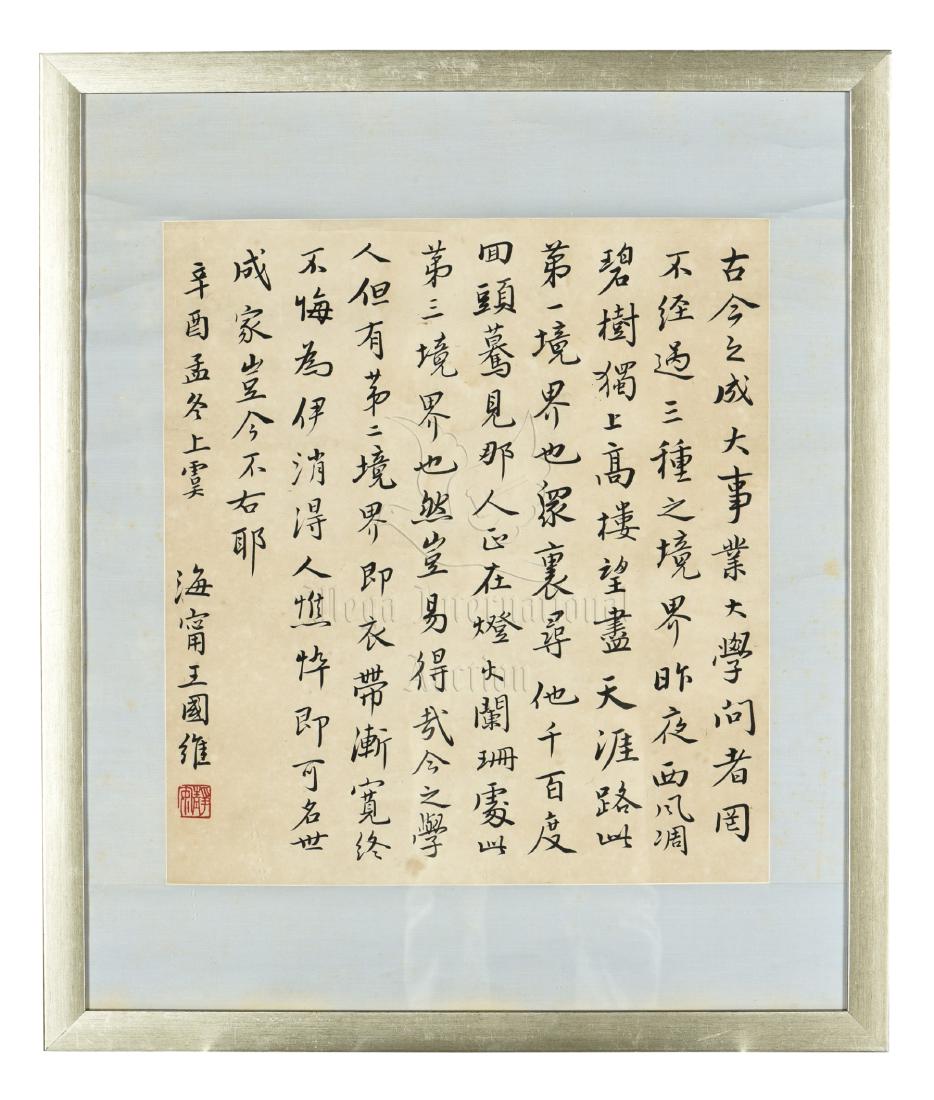 古今之成大事業大學問者罔
不經過三種之境界昨夜西風凋
碧樹獨上高樓望盡天涯路此
第一境界也眾裏尋他千百度
回頭驀見那人正在燈火闌珊處此
第三境界也然豈易得哉今之學
人但有第二境界即衣帶漸寬終
不悔為伊消得人憔悴即可名世
成家豈今不右耶
辛酉孟冬上虞
海甯王國維
靜安
Mega International
Auction